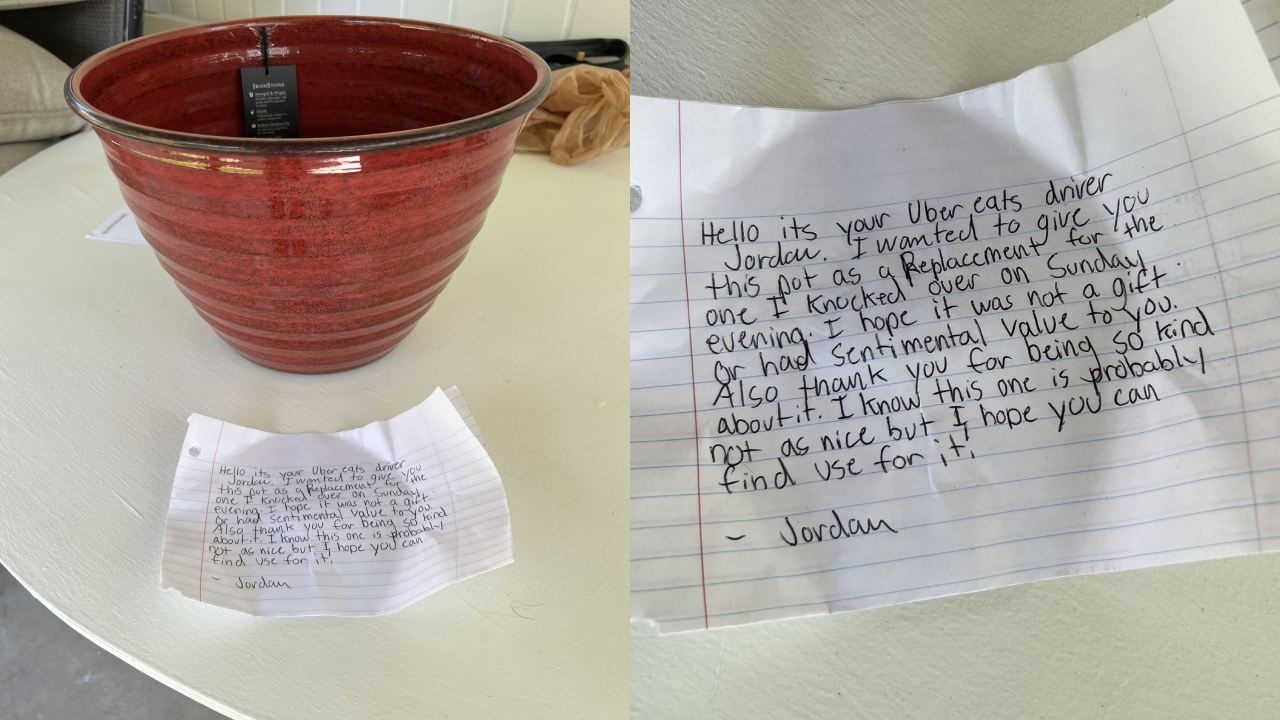 IRONSTONE
Strength & Weight
Finish
Hello its your Uber eats driver
Jordan. I wanted to give you
this pot as a Replacement for the
one I knocked over on Sunday
evening. I hope it was not a gift
or had sentimental value to you.
Also thank you for being so kind
about it. I know this one is probably
not as nice but I hope you can
find use for it!
- Jordan
Hello its your Uber eats driver
Jordan. I wanted to give you
this pot as a Replacement for the
one I knocked over on Sunday
evening. I hope it was not a gift
or had sentimental value to you.
Also thank you for being so kind
about it. I know this one is probably
not as nice but I hope you can
find use for it!
- Jordan